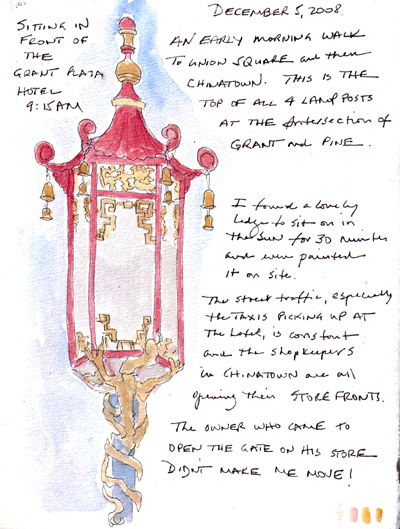 SITTING IN
FRONT OF
THE
GRANT PLAZA
HOTEL
9:15 AM
DECEMBER 5, 2008
AN EARLY MORNING WALK
TO UNION SQUARE and then
CHINATOWN. THIS IS THE
TOP OF ALL 4 LAMP POSTS
AT THE intersection of
GRANT and PINE.
I found a lovely
ledge to sit on in
the SUN for 30 minutes
and even painted
it on site.
The street traffic, especially
the TAXIS PICKING UP AT
The hotel, is constant
and the shopkeepers
in CHINATOWN are all
opening their STORE FRONTS.
The OWNER WHO CAME TO
OPEN THE GATE ON HIS STORE
DIDNT MAKE ME MOVE!